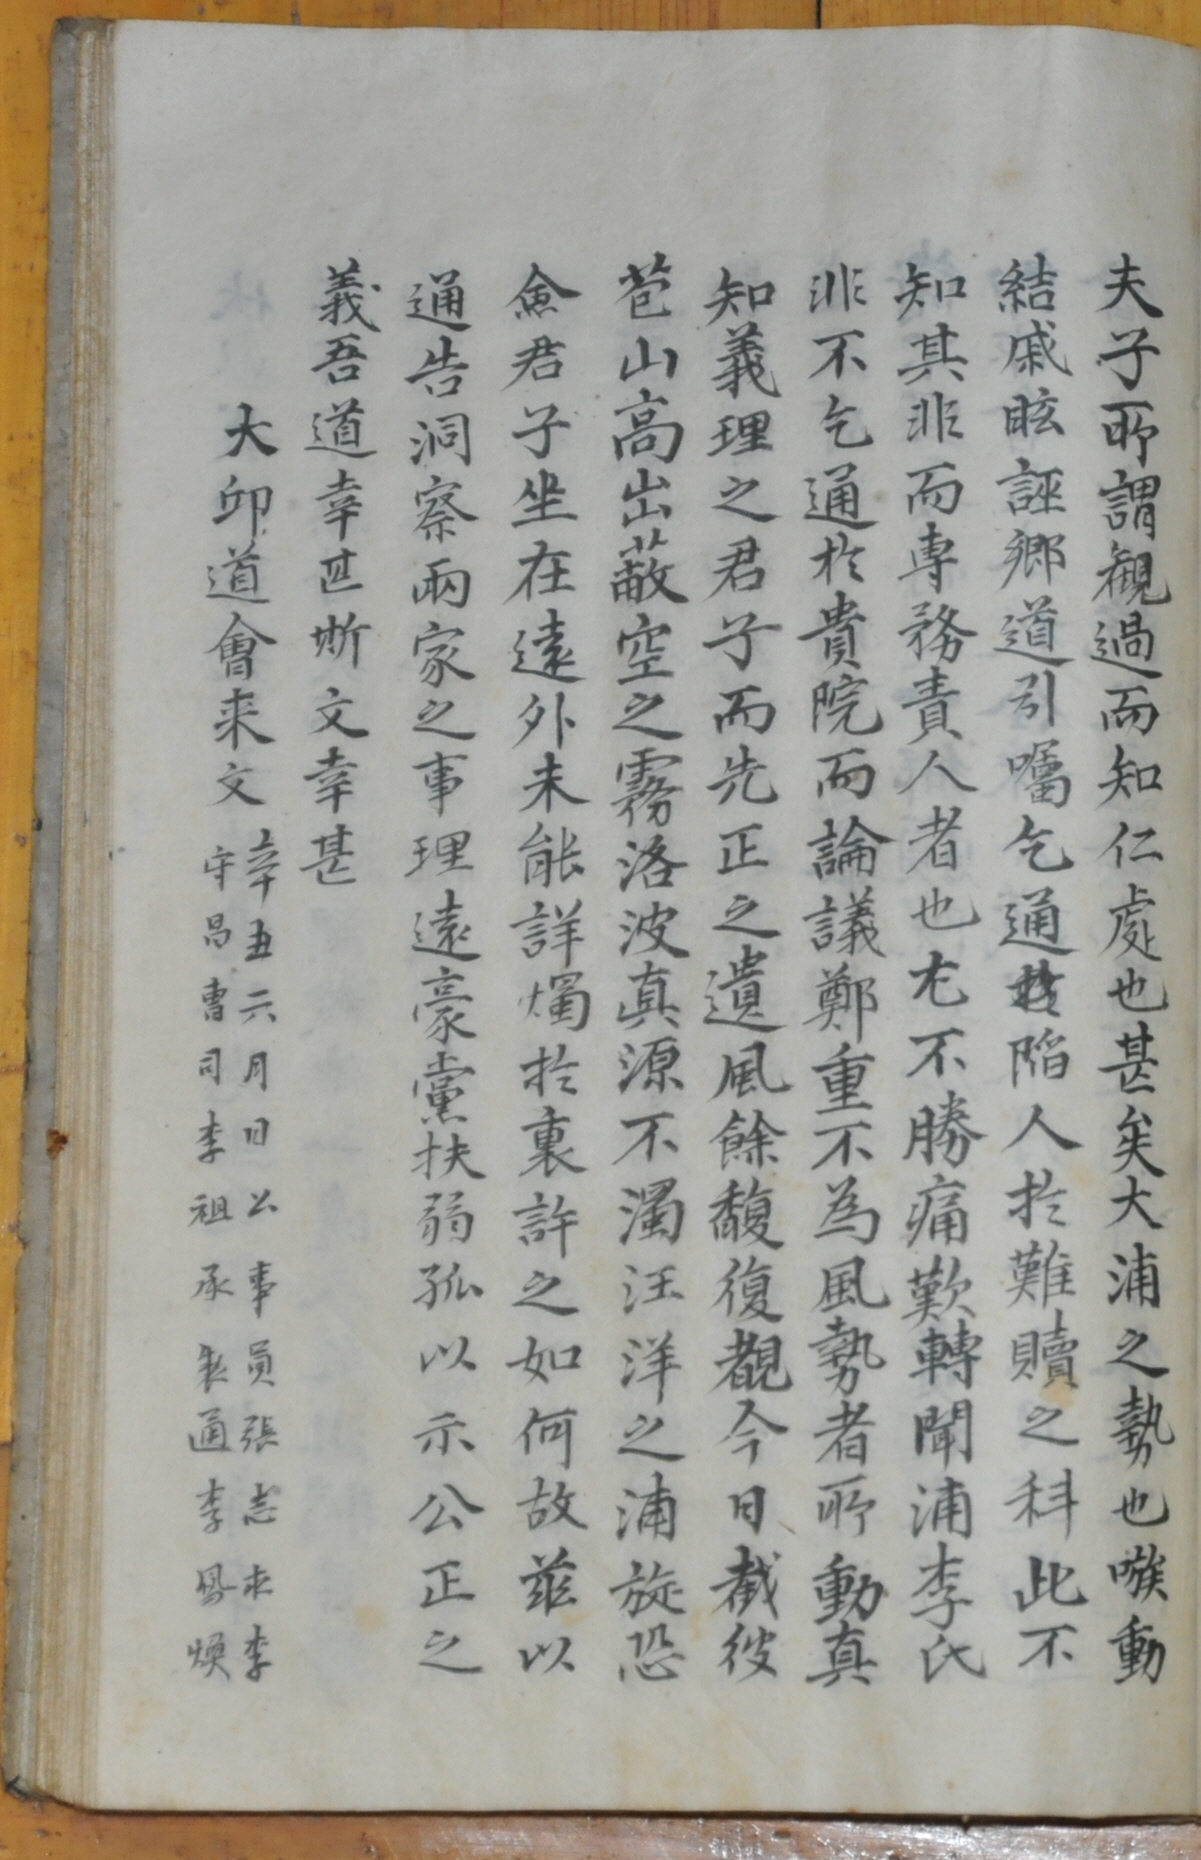 夫子所謂觀過而知仁處也甚矣大浦之勢也嗾動
結戚眩誣鄉道引囑乞通㪅陷人於難贖之科此不
知其非而專務責人者也尤不勝痛歎轉聞浦李氏
非不乞通於貴院而論議鄭重不為風勢者所動真
知義理之君子而先正之遺風餘馥復覩今日截彼
苞山高出蔽空之霧洛波真源不濁汪洋之浦旋恐
僉君子坐在遠外未能詳燭於裏許之如何故玆以
通告洞察兩家之事理遠豪黨扶弱孤以示公正之
義吾道幸甚斯文幸甚
大邱道會来文
辛丑六月日公事員張志求李
守昌曹司李祖承製通李鳳煥